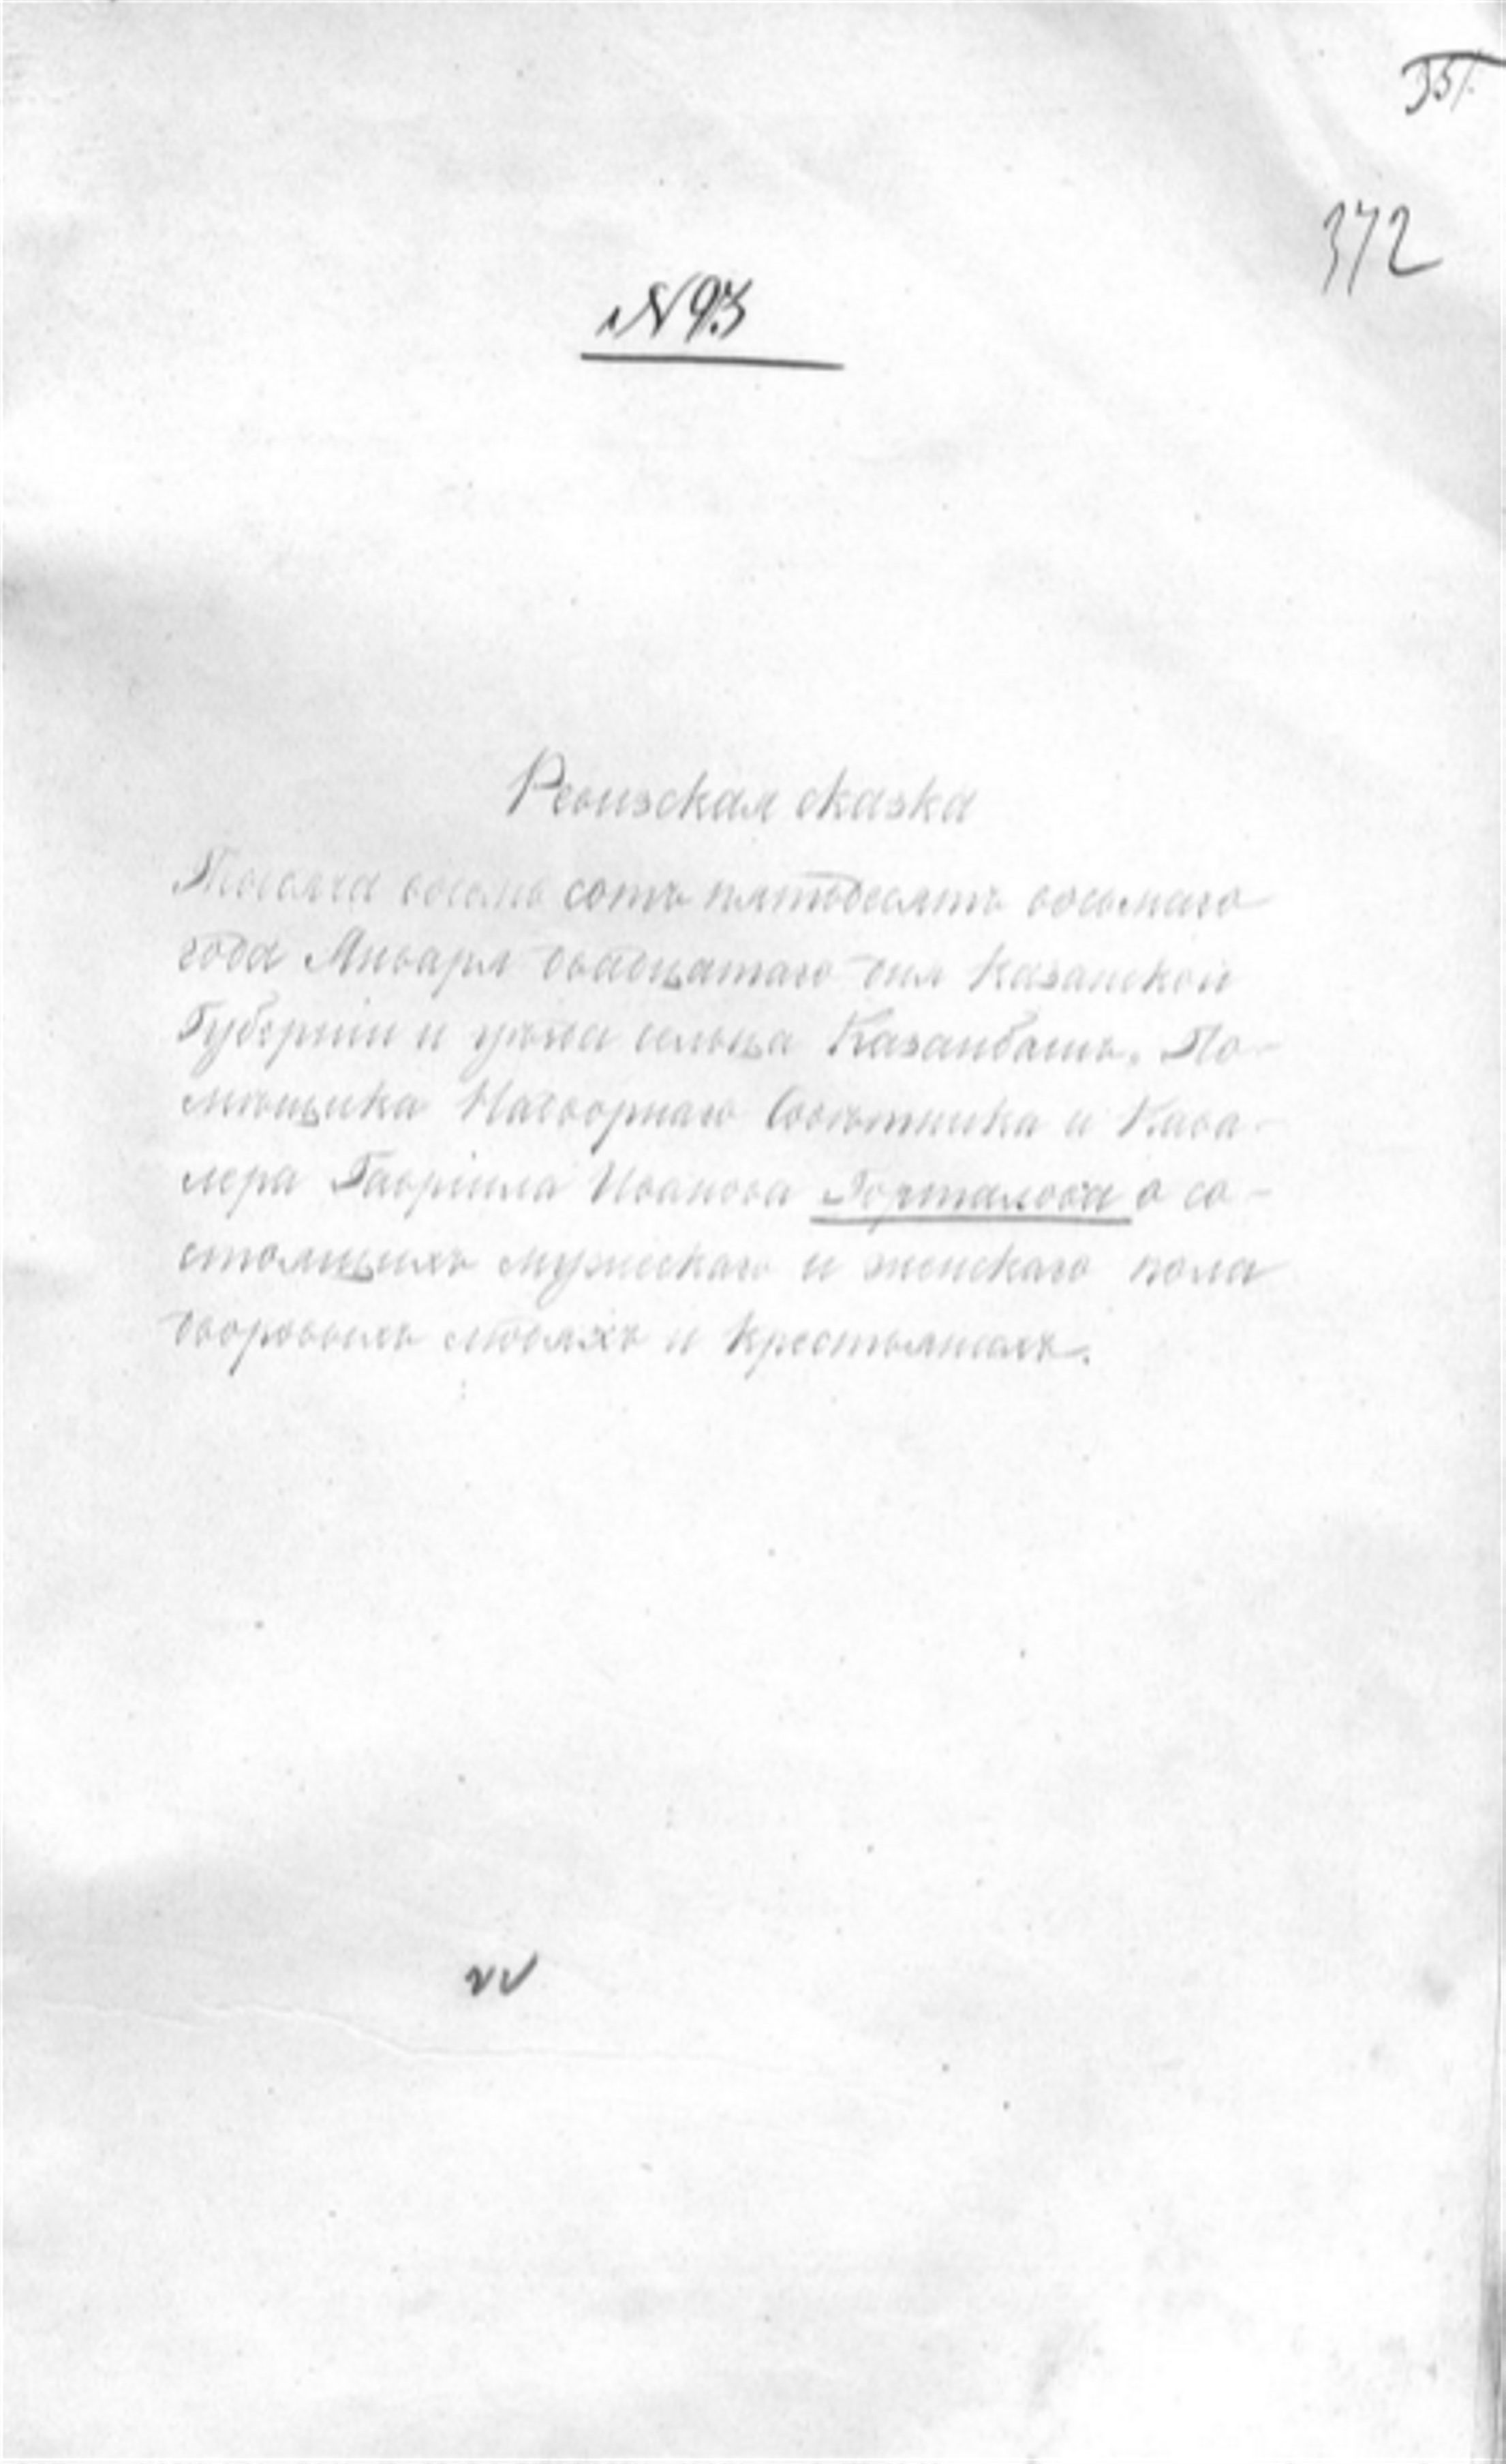 351.
372
№93
Ревизская сказка
Тысяча восемь сотъ пятьдесятъ восьмаго
года Января двадцатаго дня Казанской
Губерніи и уѣзда сельца Казанбашъ. По-
мѣщика Надворнаго Совѣтника и Кава-
лера Гавріила Иванова Горталова о со-
стоящихъ мужескаго и женскаго пола
дворовыхъ людяхъ и крестьянахъ.